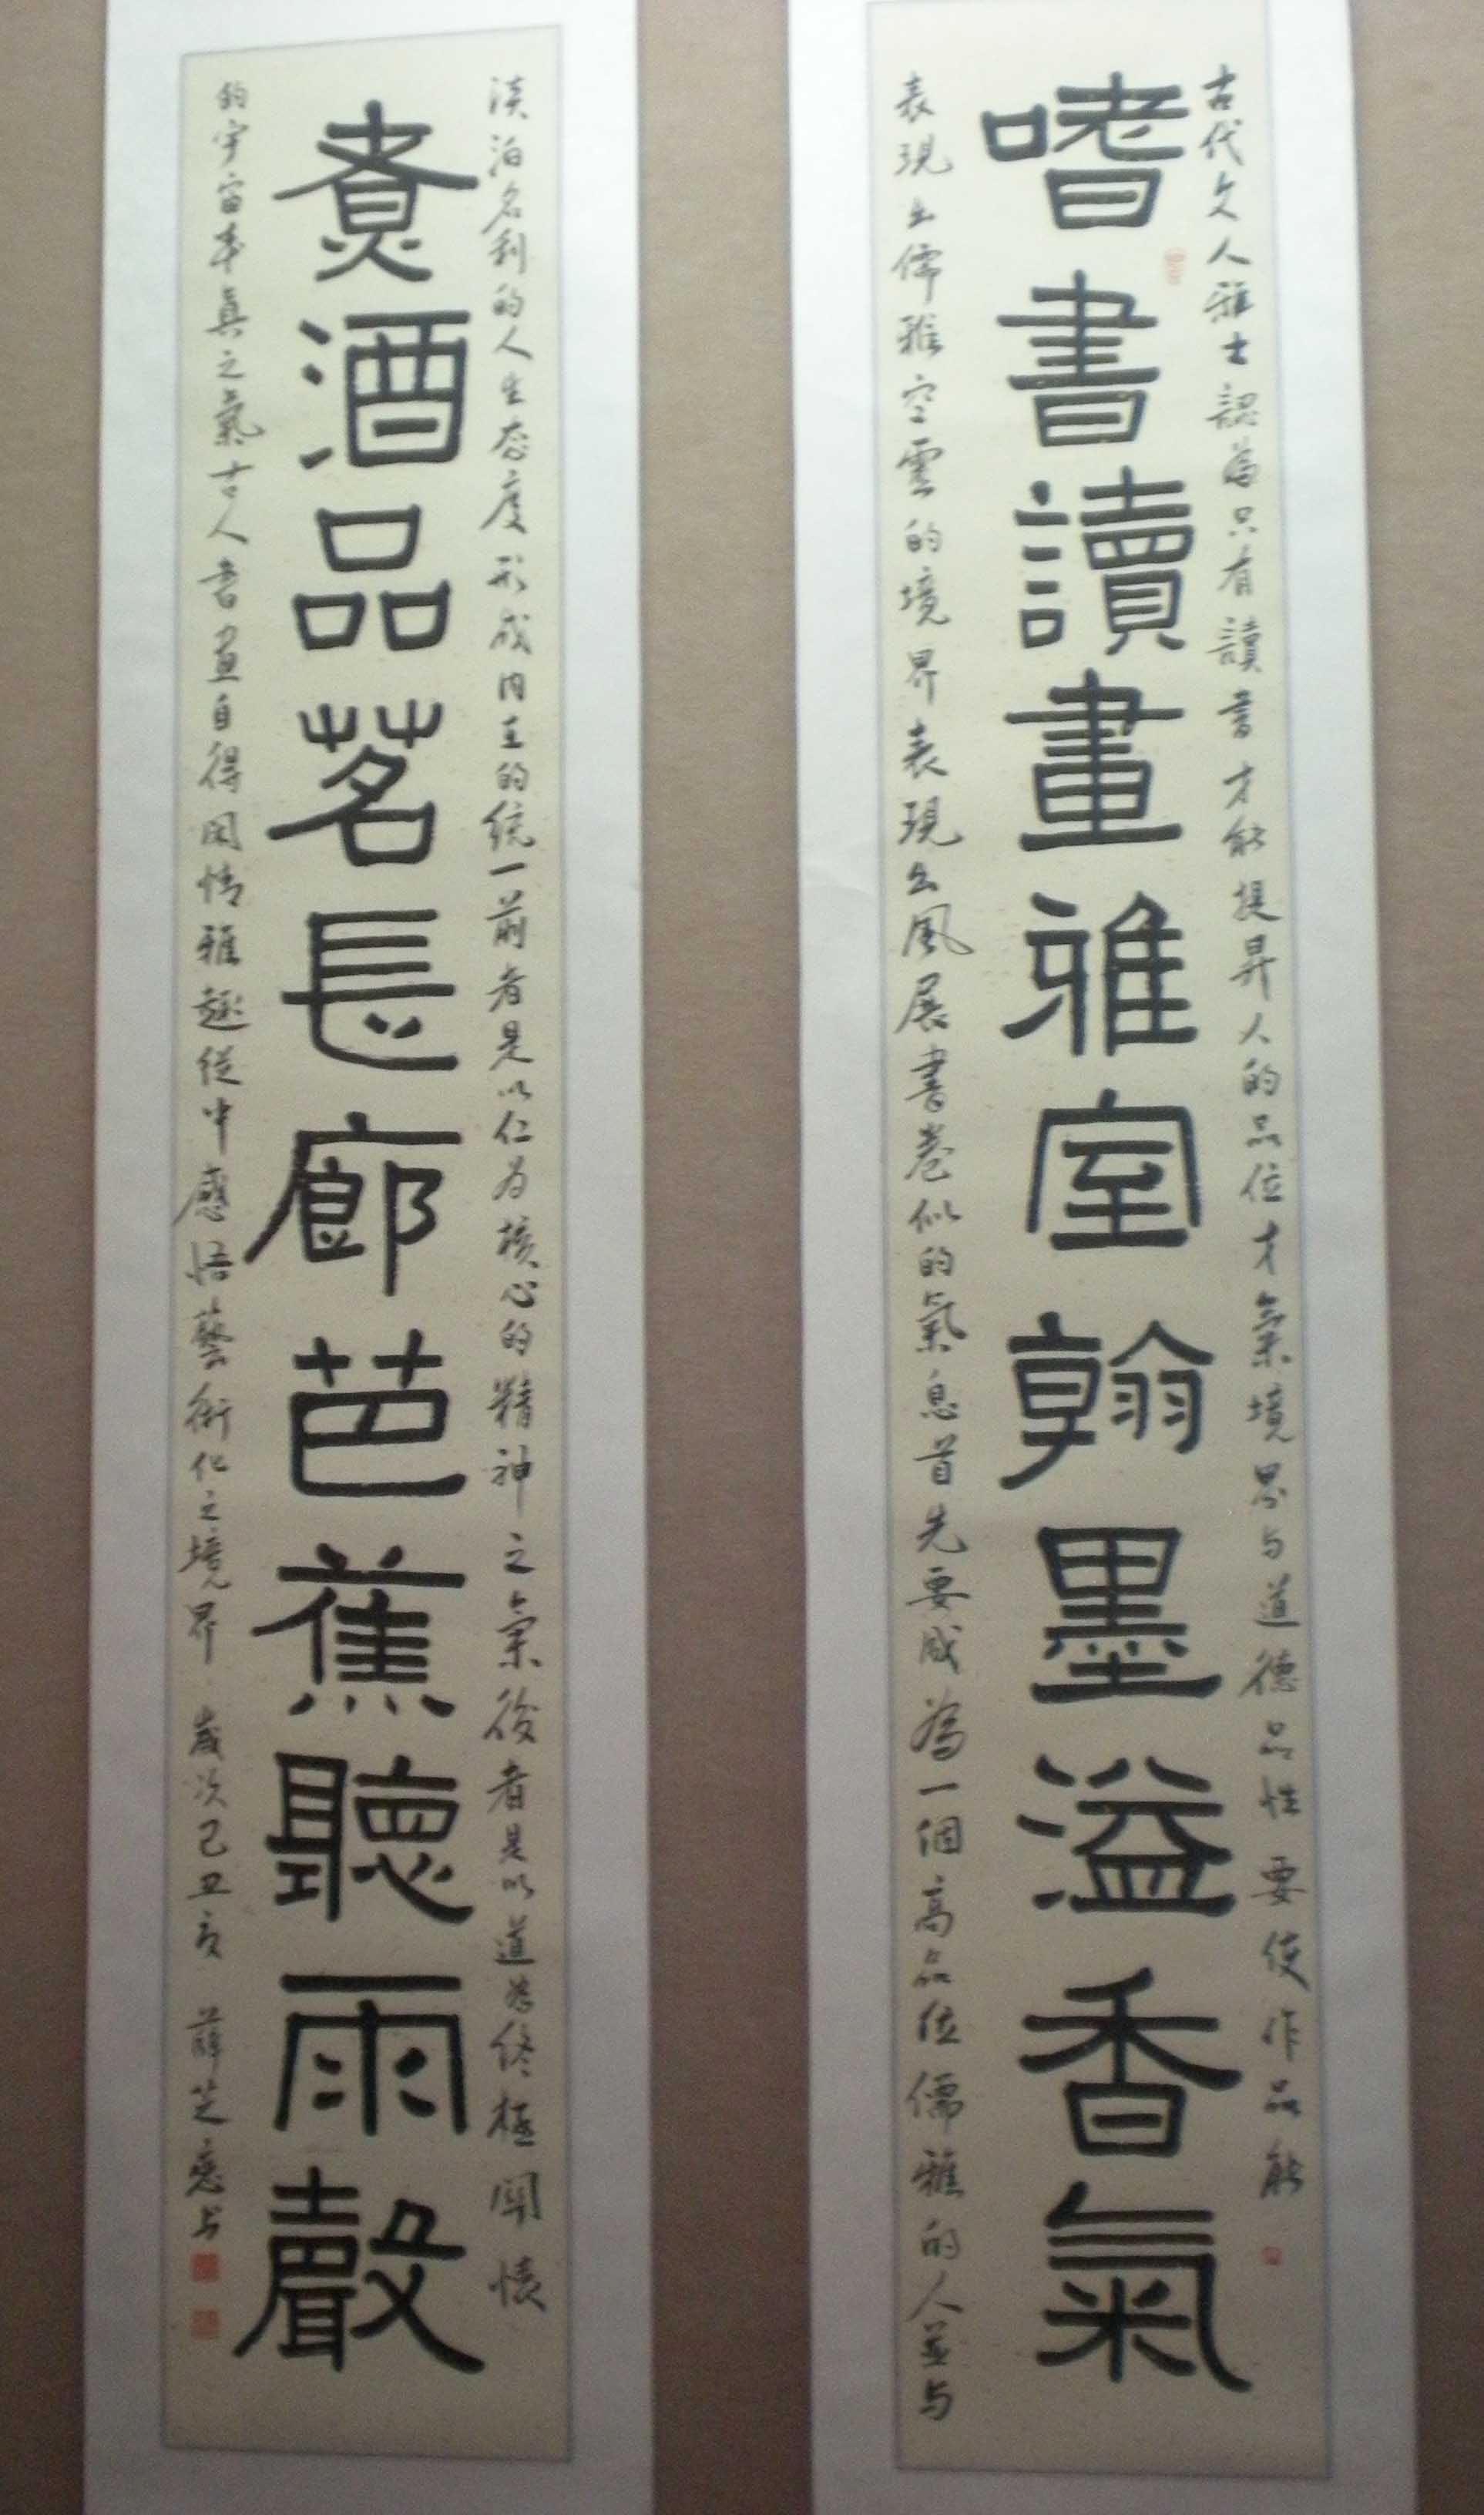 古代文人雅士認為只有讀書才能提昇人的品位才氣境界与道德品性要使作品能
嗜書讀畫雅室翰墨溢香氣
表現出儒雅空靈的境界表現出風展書卷似的氣息首先要成為一個高品位儒雅的人並与
淡泊名利的人生态度形成内在的統一前者是以仁为核心的精神之氣後者是以道為终極關懷
煮酒品茗長廊芭蕉聽雨聲
的宇宙本真之氣古人書画自得閑情雅趣從中感悟藝術化之境界歲次己丑夏薛芝意书